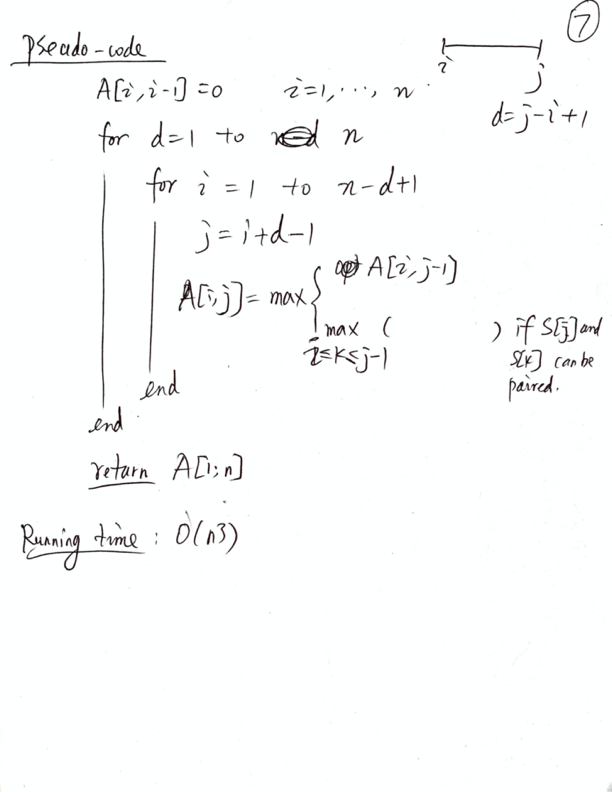 7
Pseudo-code
i j
A[i,i-1]=0 i=1,..., n
d=j-i+1
for d=1 to n
for i=1 to n-d+1
j=i+d-1
A[i,j]=max{ A[i,j-1]
max ( ) if S[j] and
i≤k≤j-1 S[k] can be
paired.
end
end
return A[1,n]
Running time: O(n3)